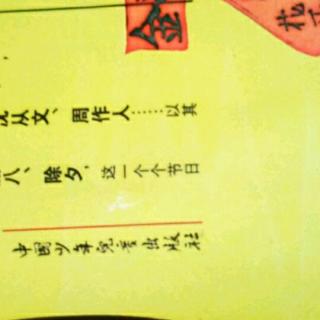 金
花
沈从文、周作人……以其
八、除夕，这一个个节日
中国少年儿童出版社